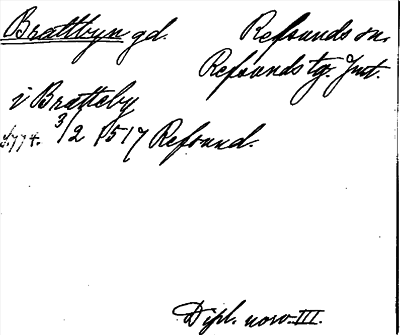 Brattbyn gd. Refsunds sn.
Refsunds tg. Jmt.
i Bratteby
s. 774. 3/2 1517 Refsund.
Dipl. norv. III.